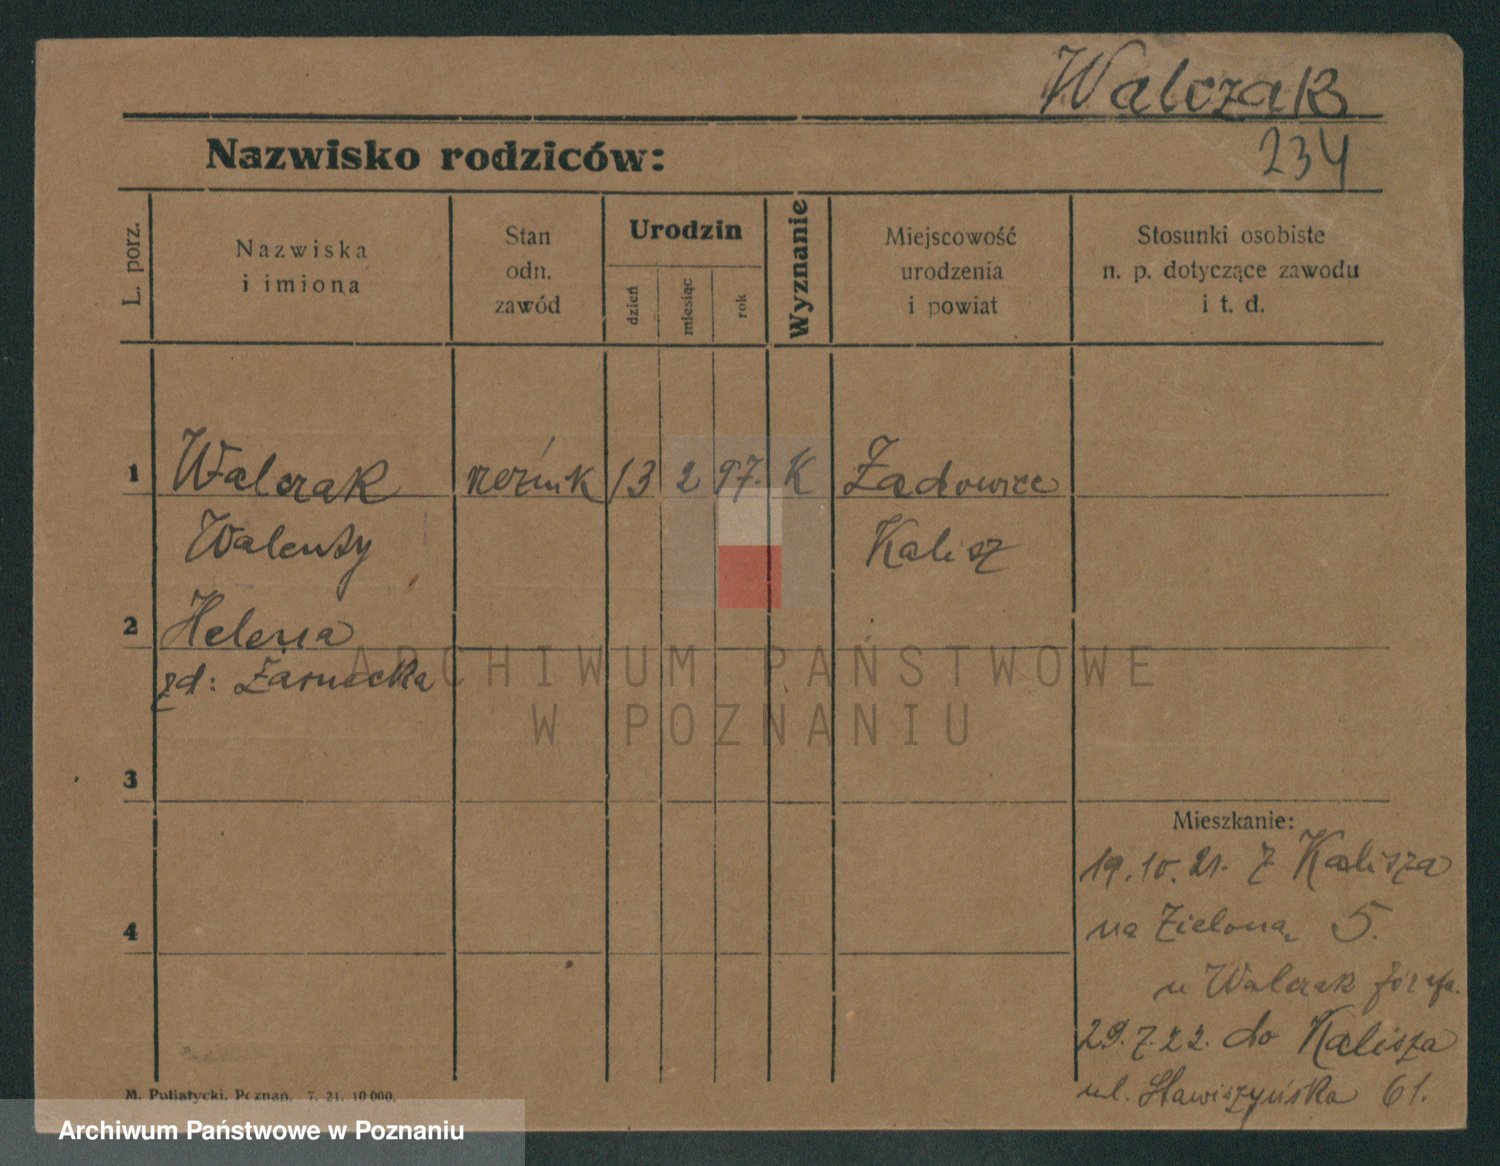 Walczak
234
Nazwisko rodziców:
L. porz.
Nazwiska
i imiona
Stan
odn.
zawód
Urodzin
dzień
miesiąc
rok
Wyznanie
Miejscowość
urodzenia
i powiat
Stosunki osobiste
n. p. dotyczące zawodu
i t. d.
1 Walczak rzeźnik 13 2 97. K Żadowice
Walenty Kalisz
2 Helena
zd: Żarnecka
3
4
Mieszkanie:
19.10.21. z Kalisza
na Zieloną 5.
u Walczak Józefa.
29.7.22. do Kalisza
ul. Stawiszyńska 61.
M. Putiatycki, Poznań. 7. 21. 10 000.
ARCHIWUM PAŃSTWOWE
W POZNANIU
Archiwum Państwowe w Poznaniu